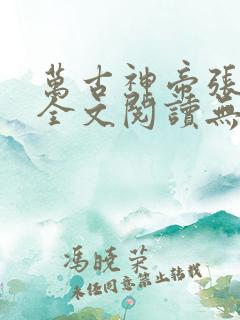 萬古神帝張
全文閱讀無
馮曉榮
未經同意禁止轉載